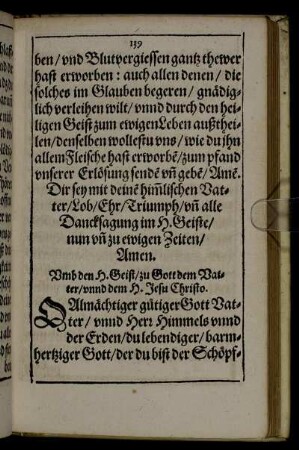 139
ben/ vnd Blutvergiessen gantz thewer
hast erworben: auch allen denen/ die
solches im Glauben begeren/ gnädig-
lich verleihen wilt/ vnnd durch den hei-
ligen Geist zum ewigen Leben außthei-
len/ denselben wollestu vns/ wie du jhn
allem Fleische hast erworbẽ/ zum pfand
vnserer Erlösung sendẽ vñ gebẽ/ Amẽ.
Dir sey mit deinẽ him̃lischen Vat-
ter/ Lob/ Ehr/ Triumph/ vñ alle
Dancksagung im H. Geiste/
nun vñ zu ewigen Zeiten/
Amen.
Vmb den H. Geist/ zu Gott dem Vat-
ter/ vnnd dem H. Jesu Christo.
O Allmächtiger gütiger Gott Vat-
ter/ vnnd Herr Himmels vnnd
der Erden/ du lebendiger/ barm-
hertziger Gott/ der du bist der Schöpf-